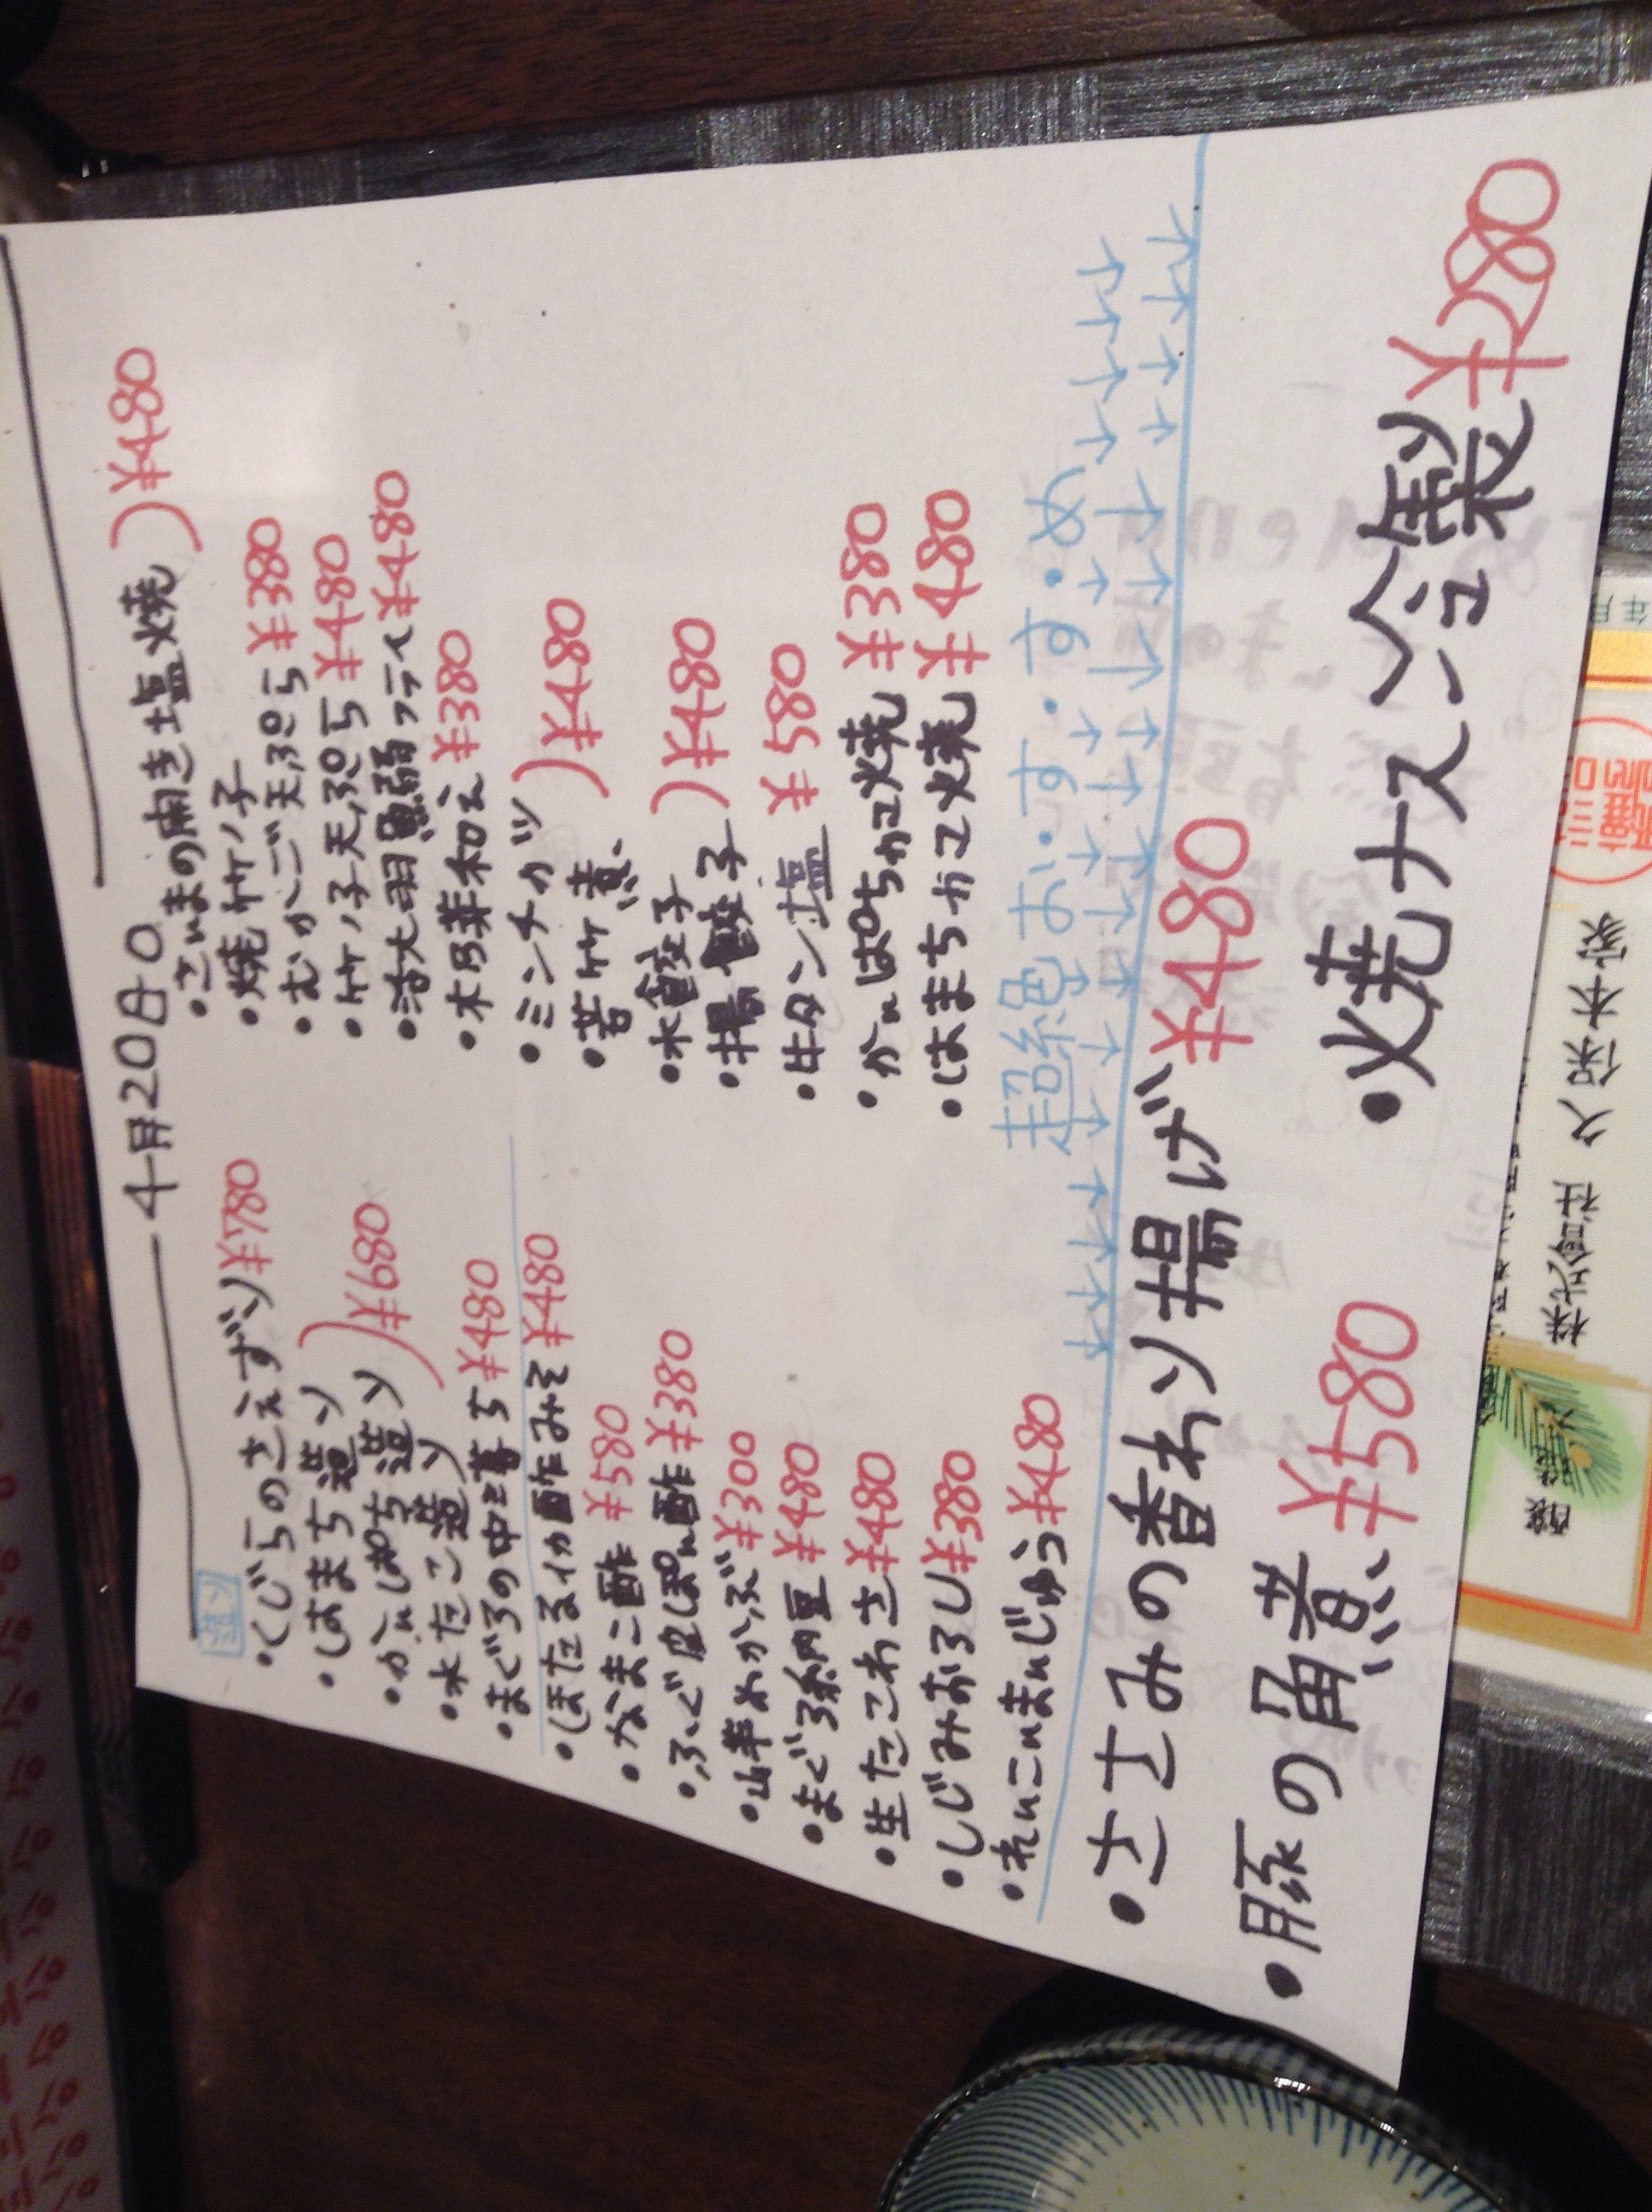 4月20日
造り
・くじらのさえずり ¥780
・はまち造り
・かんぱち造り
・水たこ造り
) ¥680
・まぐろの中とろ ¥480
・ほたるイカ酢みそ ¥480
・なまこ酢 ¥580
・ふぐ皮ぽん酢 ¥380
・山芋めかぶ ¥300
・まぐろ納豆 ¥480
・生たこわさ ¥480
・しじみおろし ¥380
・れんこんまんじゅう ¥480
・さんまの開き塩焼
・焼竹ノ子
) ¥480
・むかご天ぷら ¥380
・竹ノ子天ぷら ¥480
・活大羽鰯フライ ¥480
・木の芽和え ¥380
・ミンチカツ
・若竹煮
) ¥480
・水餃子
・揚餃子
) ¥480
・牛タン塩 ¥580
・かんぱちカマ焼 ¥380
・はまちカマ焼 ¥480
超絶お・す・す・め
・ささみの香り揚げ ¥480
・豚の角煮 ¥580
・焼ナスジュンサイ ¥280
株式会社 久保本家